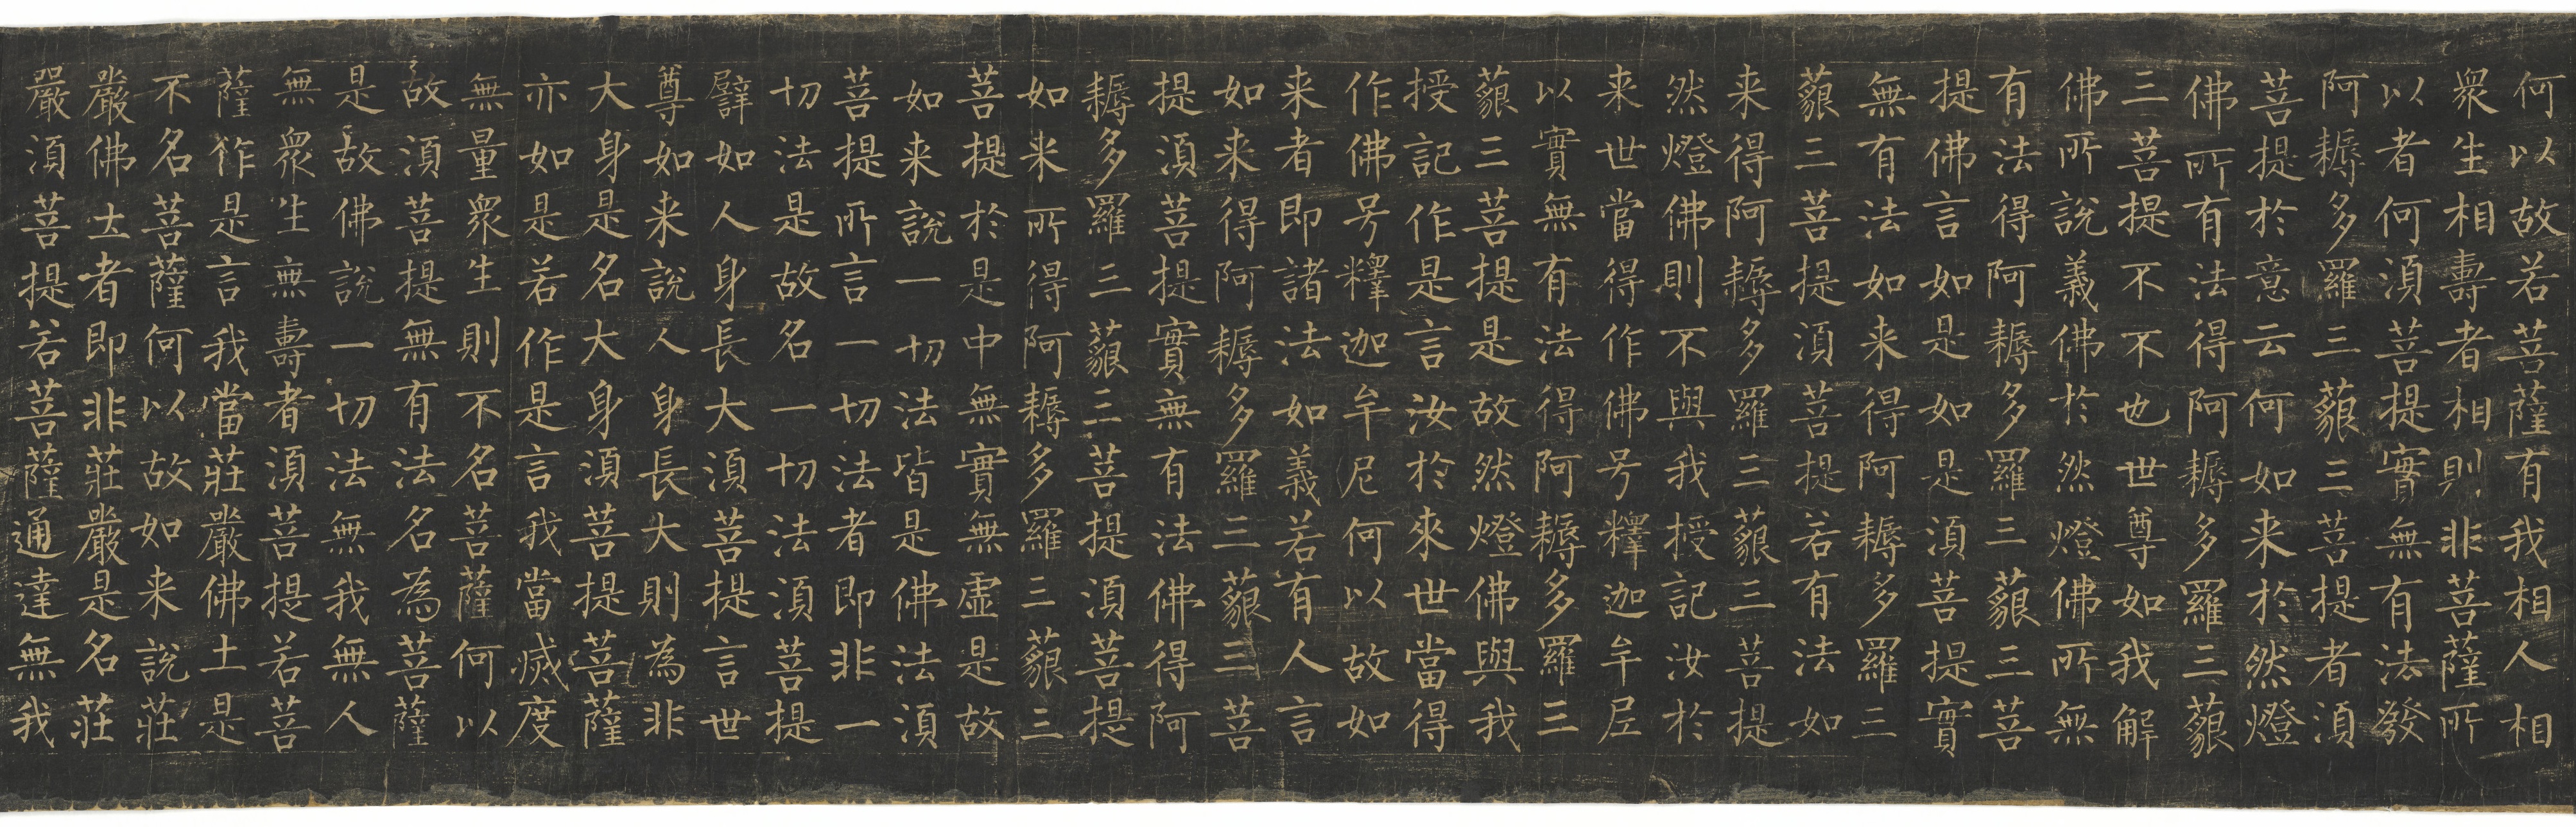 何以故若菩薩有我相人相
衆生相壽者相則非菩薩所
以者何湏菩提實無有法發
阿耨多羅三藐三菩提者湏
菩提於意云何如来於然燈
佛所有法得阿耨多羅三藐
三菩提不不也世尊如我解
佛所說義佛於然燈佛所無
有法得阿耨多羅三藐三菩
提佛言如是如是湏菩提實
無有法如来得阿耨多羅三
藐三菩提湏菩提若有法如
来得阿耨多羅三藐三菩提
然燈佛則不與我授記汝於
来世當得作佛号釋迦牟尼
以實無有法得阿耨多羅三
藐三菩提是故然燈佛與我
授記作是言汝於來世當得
作佛号釋迦牟尼何以故如
来者即諸法如義若有人言
如来得阿耨多羅三藐三菩
提湏菩提實無有法佛得阿
耨多羅三藐三菩提湏菩提
如来所得阿耨多羅三藐三
菩提於是中無實無虛是故
如来說一切法皆是佛法湏
菩提所言一切法者即非一
切法是故名一切法湏菩提
譬如人身長大湏菩提言世
尊如来說人身長大則為非
大身是名大身湏菩提菩薩
亦如是若作是言我當滅度
無量衆生則不名菩薩何以
故湏菩提無有法名為菩薩
是故佛說一切法無我無人
無衆生無壽者湏菩提若菩
薩作是言我當莊嚴佛土是
不名菩薩何以故如来說莊
嚴佛土者即非莊嚴是名莊
嚴湏菩提若菩薩通達無我